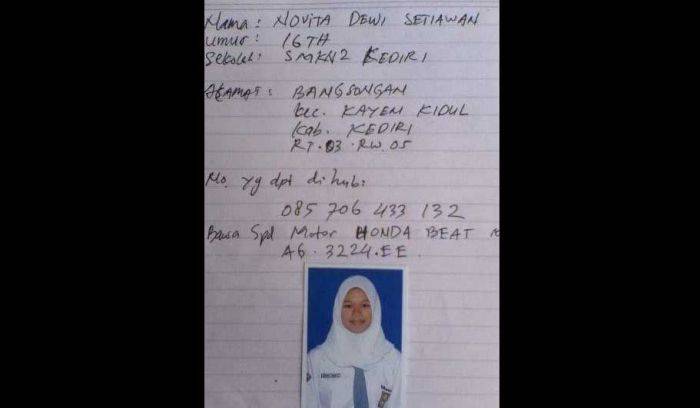 Nama : NOVITA DEWI SETIAWAN
Umur : 16TH
Sekolah : SMKN2 KEDIRI
ALAMAT : BANGSONGAN
Kec. KAYEN KIDUL
Kab. KEDIRI
RT.03.RW.05
No. yg dpt dihub:
085 706 433 132
Bawa Spd Motor HONDA BEAT
AG.3224.EE.